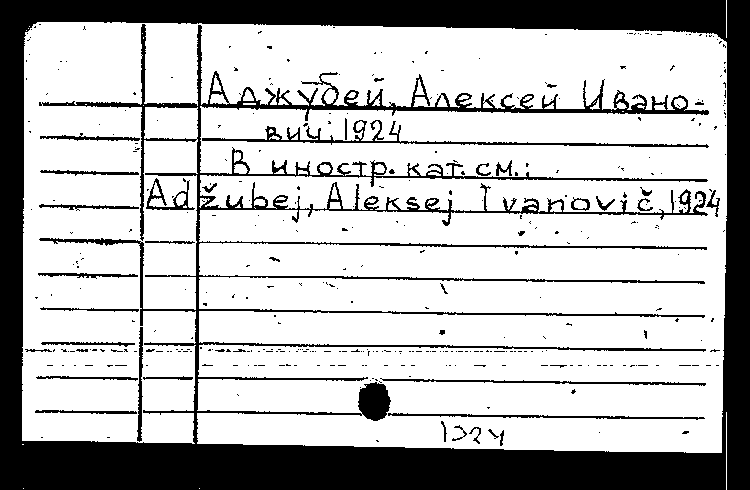 Аджубей, Алексей Ивано-
вич, 1924
В иностр. кат. см.:
Adžubej, Aleksej Ivanovič, 1924